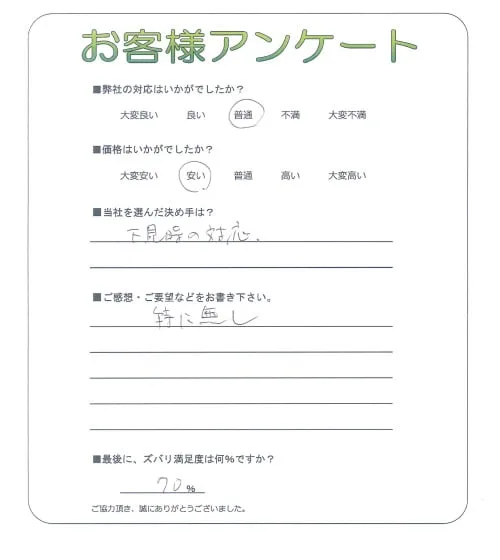 お客様アンケート
■弊社の対応はいかがでしたか？
大変良い 良い 普通 不満 大変不満
■価格はいかがでしたか？
大変安い 安い 普通 高い 大変高い
■当社を選んだ決め手は？
下見時の対応、
■ご感想・ご要望などをお書き下さい。
特に無し
■最後に、ズバリ満足度は何％ですか？
70％
ご協力頂き、誠にありがとうございました。